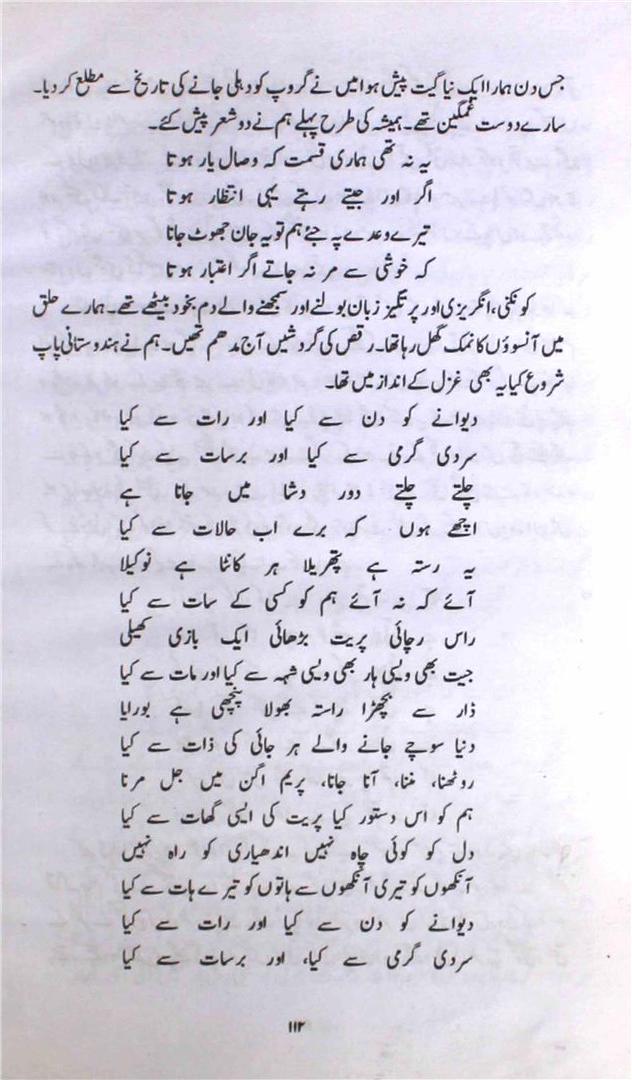 جس دن ہمارا ایک نیا گیت پیش ہوا میں نے گروپ کو دہلی جانے کی تاریخ سے مطلع کر دیا۔
سارے دوست غمگین تھے۔ ہمیشہ کی طرح پہلے ہم نے دو شعر پیش کئے۔
یہ نہ تھی ہماری قسمت کہ وصال یار ہوتا
اگر اور جیتے رہتے یہی انتظار ہوتا
تیرے وعدے پہ جئے ہم تو یہ جان جھوٹ جانا
کہ خوشی سے مر نہ جاتے اگر اعتبار ہوتا
کونکنی، انگریزی اور پرتگیز زبان بولنے اور سمجھنے والے دم بخود بیٹھے تھے۔ ہمارے حلق
میں آنسوؤں کا نمک گھل رہا تھا۔ رقص کی گردشیں آج مدھم تھیں۔ ہم نے ہندوستانی پاپ
شروع کیا یہ بھی غزل کے انداز میں تھا۔
دیوانے کو دن سے کیا اور رات سے کیا
سردی گرمی سے کیا اور برسات سے کیا
چلتے چلتے دور دشا میں جانا ہے
اچھے ہوں کہ برے اب حالات سے کیا
یہ رستہ ہے پتھریلا ہر کانٹا ہے نوکیلا
آئے کہ نہ آئے ہم کو کسی کے سات سے کیا
راس رچائی پریت بڑھائی ایک بازی کھیلی
جیت بھی ویسی ہار بھی ویسی شہہ سے کیا اور مات سے کیا
ڈار سے بچھڑا راستہ بھولا پنچھی ہے بورایا
دنیا سوچے جانے والے ہر جائی کی ذات سے کیا
روٹھنا، مننا، آنا جانا، پریم اگن میں جل مرنا
ہم کو اس دستور کیا پریت کی ایسی گھات سے کیا
دل کو کوئی چاہ نہیں اندھیاری کو راہ نہیں
آنکھوں کو تیری آنکھوں سے ہاتوں کو تیرے ہات سے کیا
دیوانے کو دن سے کیا اور رات سے کیا
سردی گرمی سے کیا، اور برسات سے کیا
۱۱۲